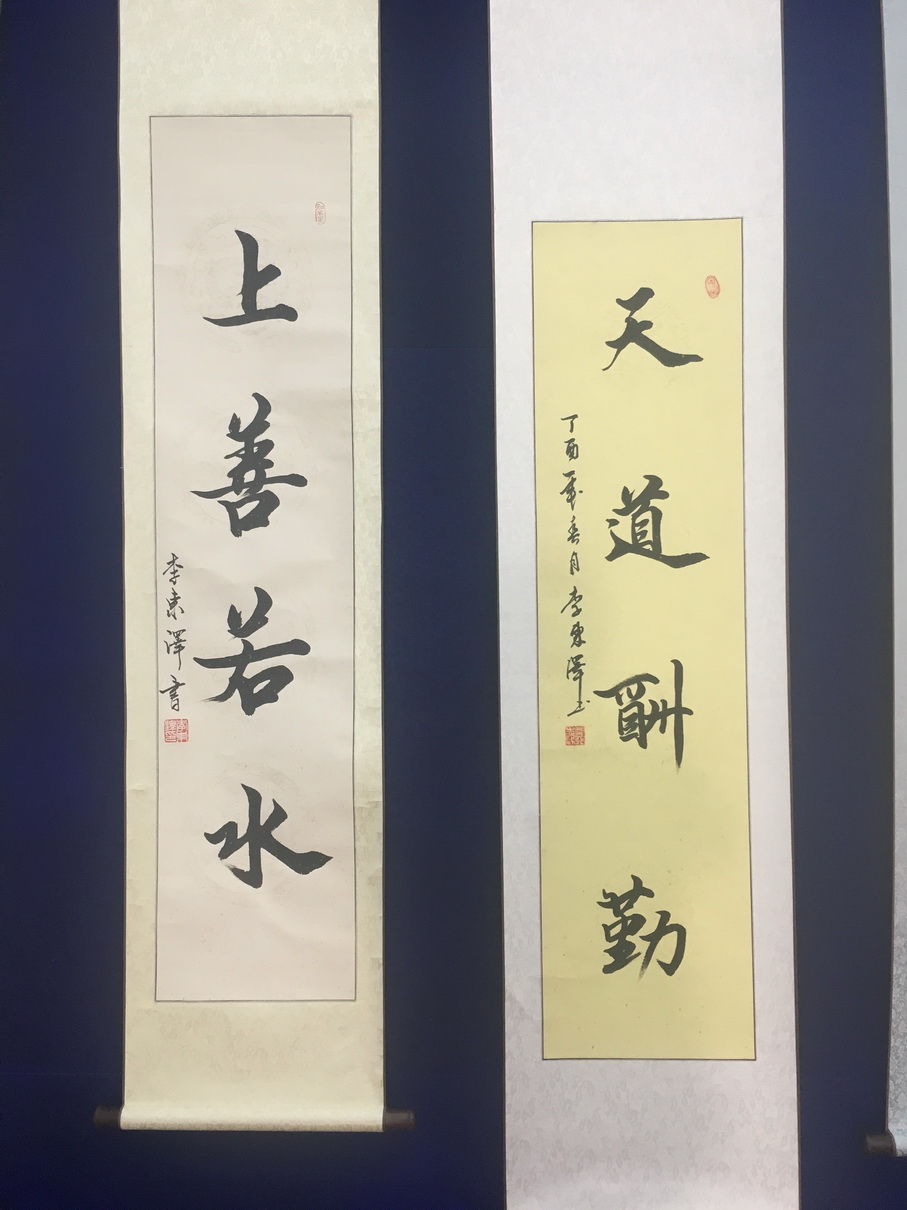 上善若水
李東澤書
天道酬勤
丁酉年春月李東澤书